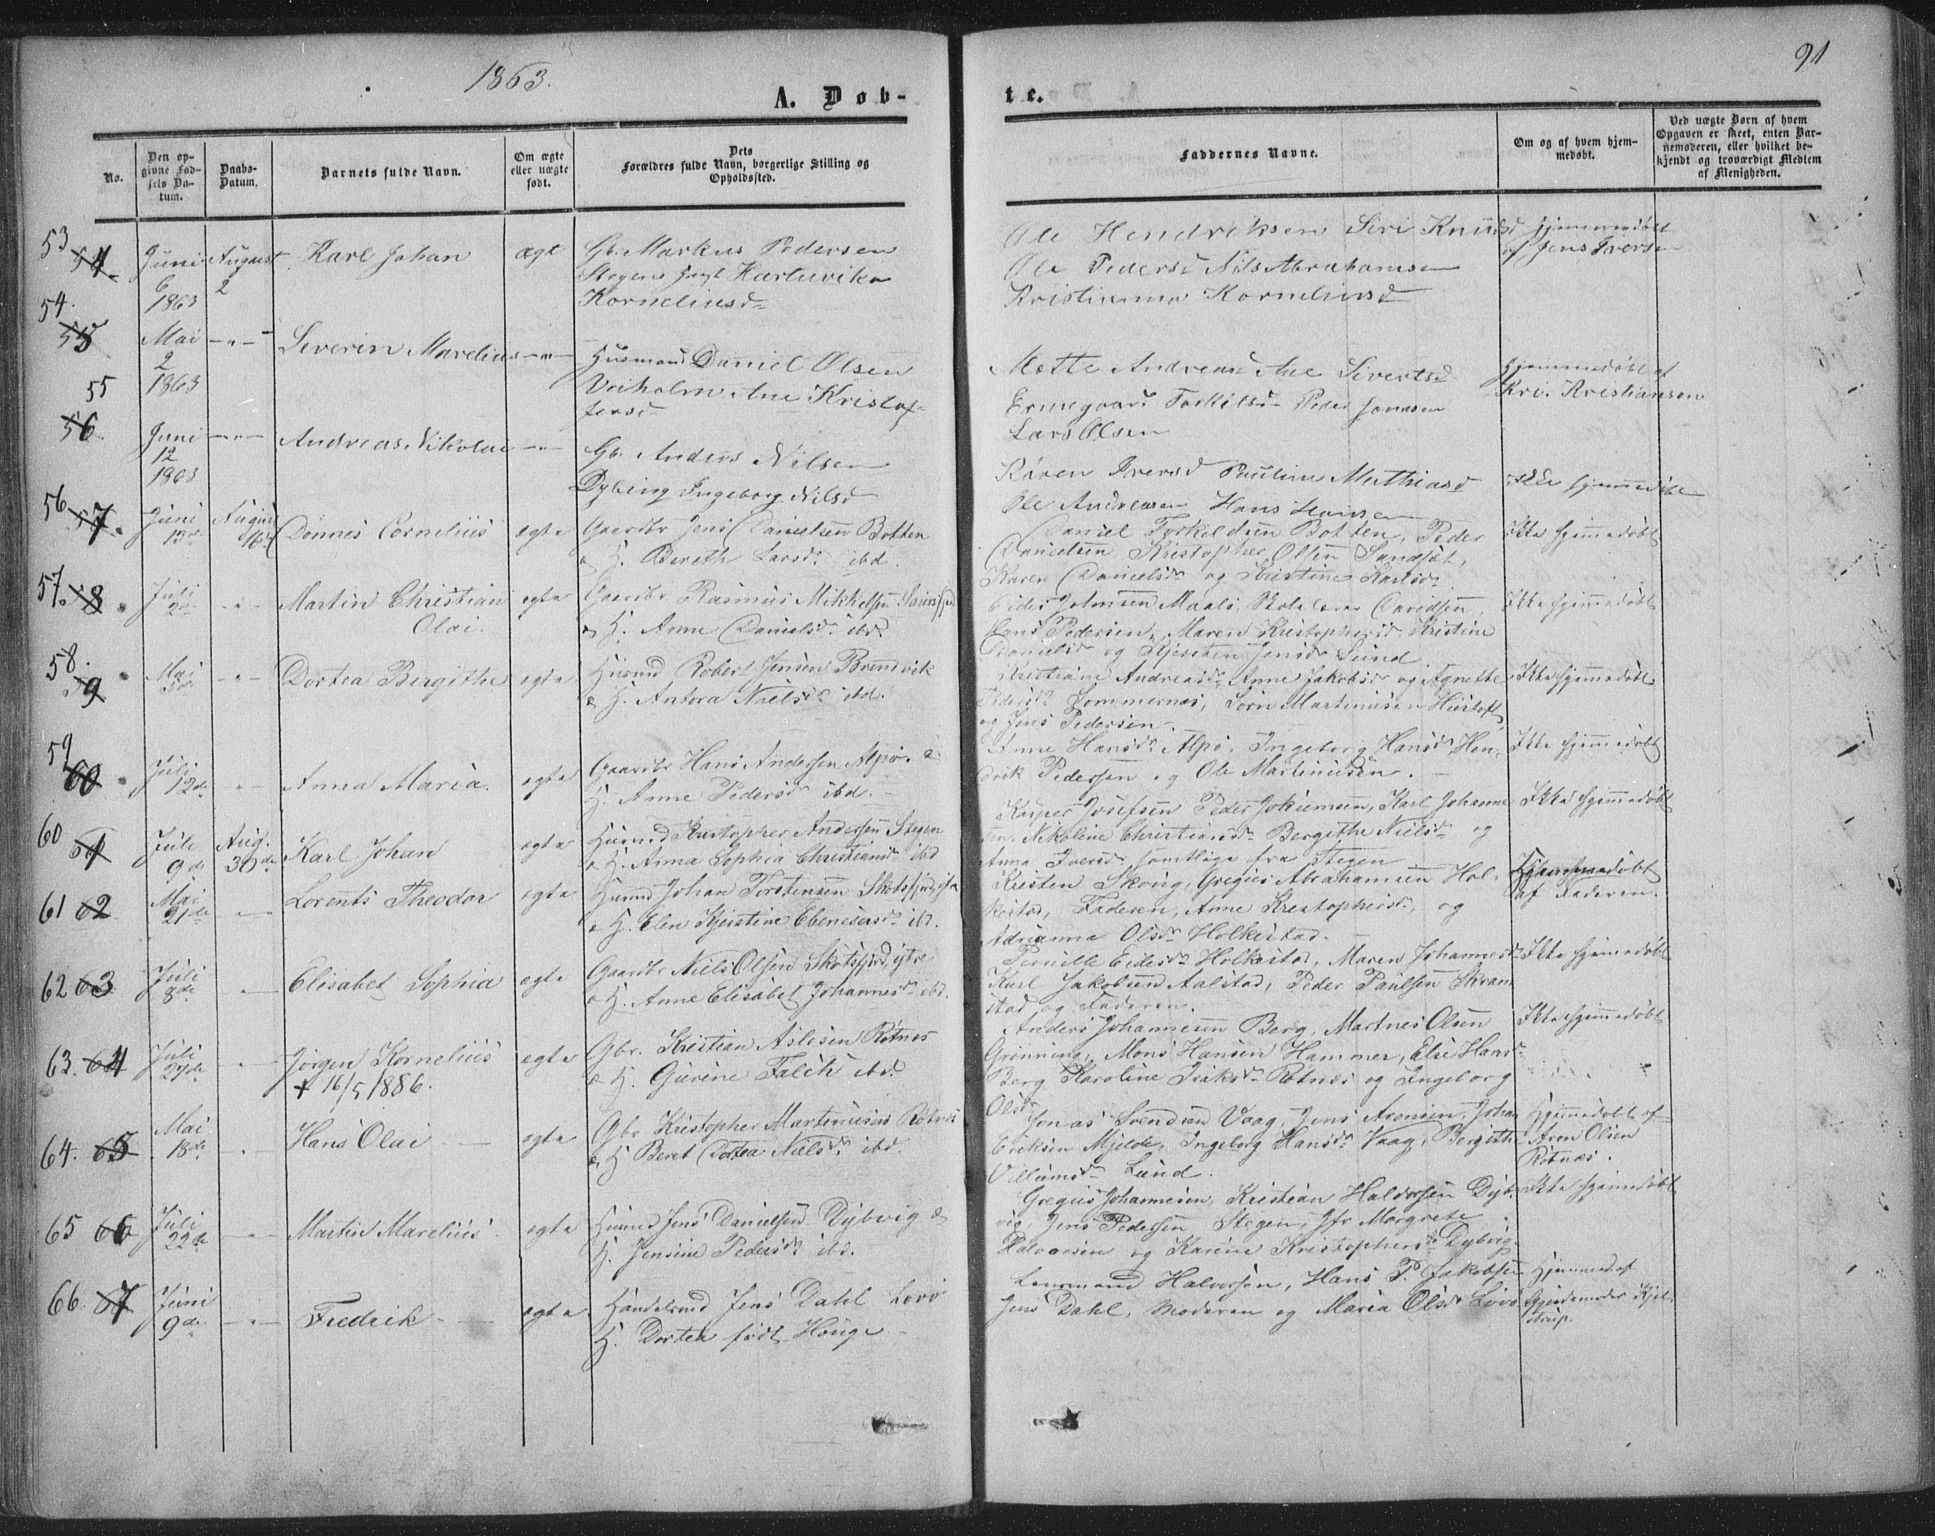 1863.
91
A. Døb-
te.
No.
Den op-
givne Fød-
sels Da-
tum.
Daabs-
Datum.
Barnets fulde Navn.
Om ægte
eller uægte
født.
Dets
Forældres fulde Navn, borgerlige Stilling og
Opholdssted.
Faddernes Navne.
Om og af hvem hjem-
medøbt.
Ved uægte Børn af hvem
Opgaven er skeet, enten Bar-
nemoderen, eller hvilket be-
kjendt og troværdigt Medlem
af Menigheden.
53 54
Juni
6
1863
August
2
Karl Johan
ægte
Gb. Markus Pedersen
Stegens
Korneliusd
Ole Hendriksen Siri Knudsd
Ole Pedersd Nils Abrahamsen
Kristianna Korneliusd
Hjemmedøbt
af Jens Iversen
54. 55
Mai
2
1863
Severin Marelius
Husmand Daniel Olsen
Veiholm Ane Kristof-
fersd
Mette Andreasd Ane Sivertsd
Ermegaard Torkilds Peder Jonasen
Lars Olsen
Hjemmedøbt af
Kri. Kristiansen
55 56
Juni
12
1863
Andreas Nikolai
Gb. Anders Nilsen
Dybing Ingeborg Nilsd
Karen Iversd Pauline Mathiasd
Ole Andreasen Hans Hansen
ikke hjemmedøbt
56 57.
Juni
13de
August
16de
Dønnes Cornelius
egte
Gaardbr Jens Danielsen Botten
& H. Bereth Larsdr ibd.
Daniel Torkildsen Botten, Peder
Danielsen Kristopher Olsen Sandsøt,
Karen Danielsdr og Kristine Karlsdr
Ikke hjemmedøbt
57. 58
Juli
2de
Martin Christian
Olai.
egte
Gaardbr Rasmus Mikkelsen
& H. Anne Danielsdr ibd.
Johnsen Maalø, Skolelærer Davidsen,
Hans Pedersen, Maren Kristophersdr Kristine
Danielsdr og Kjersten Jensdr Lund
Ikke hjemmedøbt
58. 59
Mai
Dortea Bergithe
egte
Husmd Robert Jensen Brendvik
& H. Antora Nielsdr ibd.
Kristiane Andreasdr, Anne Jakobsdr og Agnethe
Pedersdr Sommernes, Sørn Martinusen Hustoft
og Jens Pedersen.
Ikke hjemmedøbt
59 60
Juli
12de
Anna Maria.
egte
Gaardbr Hans Andersen Alpø. &
H. Anne Pedersdr ibd.
Anne Hansdr Alpø, Ingeborg Hansdr Hen-
drik Pedersen og Ole Martinusen.
Ikke hjemmedøbt
60 61
Juli
9de
Aug.
30de
Karl Johan
egte
Husmd Kristopher Andersen Stegen
& H. Anna Sophia Christiansdr ibd
Kasper Josefsen Peder Jokumsen, Karl Johanne-
sen, Nikoline Christiansdr Bergithe Nielsdr og
Anna Iversdr samtlige fra Stegen
Ikke hjemmedøbt
61 62
Mai
21de
Lorents Theodor
egte
Husmd Johan Torstensen Skotsfjord
& H. Elen Kjerstine Ebenesersdr ibd.
Kristen Skoug, Gregius Abrahamsen Hol-
kestad, Faderen, Anne Kristophersdr, og
Adrianna Olsdr Holkestad.
Hjemmedøbt
af Faderen.
62 63
Juli
8de
Elisabet Sophia
egte
Gaardbr Niels Olsen Skotsfjord ytre
& H. Anne Elisabet Johannesdr ibd.
Pernille Eidesdr Holkestad, Maren Johannesdr
Karl Jakobsen Aalstad, Peder Paulsen Skram
stad og Faderen.
Ikke hjemmedøbt
63. 64
Juli
29de
Jørgen Kornelius
+ 16/5 1886.
egte
Gbr. Kristian Aslisen Røtnes
& H. Gurine Falch ibd.
Anders Johannesen Berg, Martnes Olsen
Grønning, Mons Hansen Hammer, Else Hansdr
Berg Karoline Isaksdr Røtnes og Ingeborg
Olsdr
Ikke hjemmedøbt
64. 65
Mai
18de
Hans Olai
egte
Gbr Kristopher Martinusen Røtnes
& H Beret Dortea Nielsdr ibd.
Jonas Svendsen Vaag, Jens Aronsen, Johan
Eriksen Mjelde, Ingeborg Hansdr Vaag, Bergithe
Villumsdr Lund.
Hjemmedøbt af
Aron Olsen
Røtnes.
65 66
Juli
22de
Martin Marelius
egte
Husmd Jens Danielsen Dybvig &
H. Jensine Pedersdr ibd.
Gregius Johannesen, Kristian Haldorsen Dyb-
vig, Jens Pedersen Stegen, Jfr Margrete
Halvorsen og Karine Kristophersdr Dybvig.
Ikke hjemmedøbt
66. 67
Juni
9de
Fredrik
egte
Handelsmd Jens Dahl Løvø
H. Dortea født Houge
Lensmand Halvorsen, Hans P. Jakobsen
Jens Dahl, Moderen og Maria Olsdr Løvø
Hjemmed af
Gjordemoder Kjel-
strup.